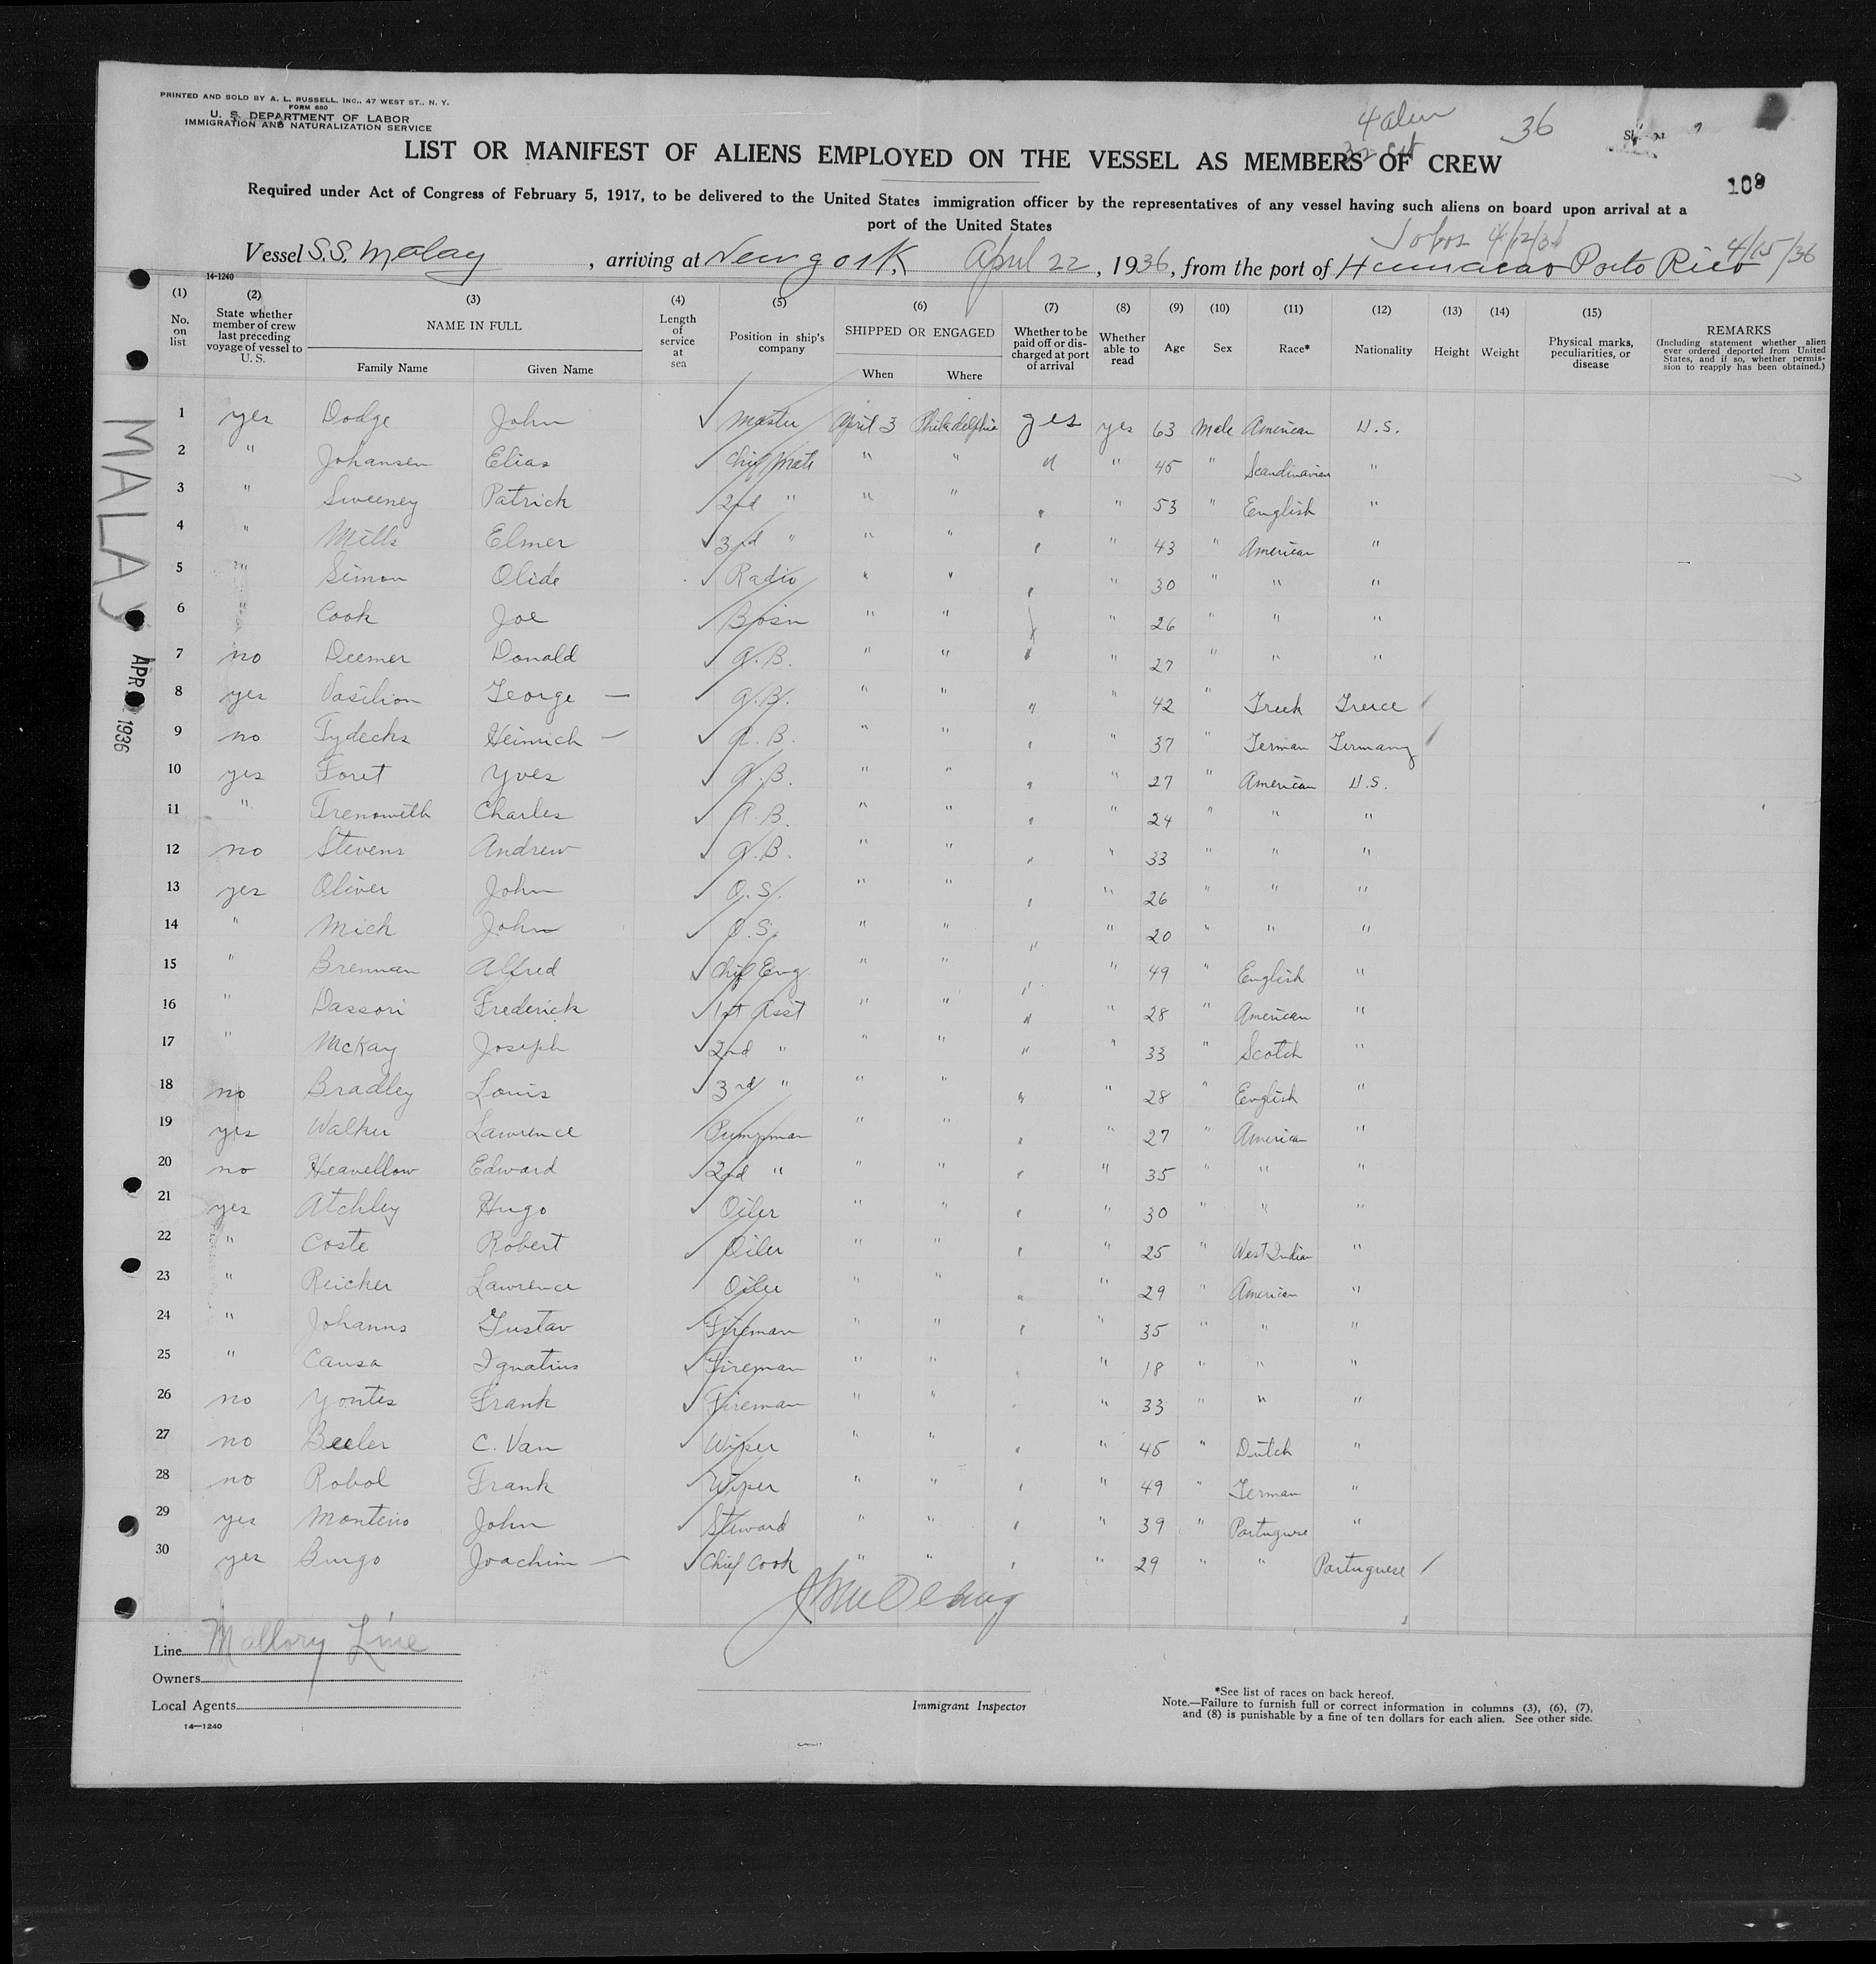 PRINTED AND SOLD BY A. L. RUSSELL, INC., 47 WEST ST., N. Y.
FORM 680
U. S. DEPARTMENT OF LABOR
IMMIGRATION AND NATURALIZATION SERVICE
4 alien 36
LIST OR MANIFEST OF ALIENS EMPLOYED ON THE VESSEL AS MEMBERS OF CREW
109
Required under Act of Congress of February 5, 1917, to be delivered to the United States immigration officer by the representatives of any vessel having such aliens on board upon arrival at a
port of the United States
Jobos 4/12/36 4/15/36
Vessel S.S. Malay, arriving at New York April 22, 1936, from the port of Humacao Porto Rico
14-1240
(1) No. on list
(2) State whether member of crew last preceding voyage of vessel to U. S.
(3) NAME IN FULL Family Name Given Name
(4) Length of service at sea
(5) Position in ship's company
(6) SHIPPED OR ENGAGED When Where
(7) Whether to be paid off or discharged at port of arrival
(8) Whether able to read
(9) Age
(10) Sex
(11) Race*
(12) Nationality
(13) Height
(14) Weight
(15) Physical marks, peculiarities, or disease
REMARKS (Including statement whether alien ever ordered deported from United States, and if so, whether permission to reapply has been obtained.)
1 yes Dodge John ✓ Master April 3 Philadelphia yes yes 63 Male American U.S.
2 " Johansen Elias ✓ Chief Mate " " " " 45 " Scandinavian "
3 " Sweeney Patrick ✓ 2nd " " " " " 53 " English "
4 " Mills Elmer ✓ 3rd " " " " " 43 " American "
5 " Simon Olide ✓ Radio " " " " 30 " " "
6 " Cook Joe ✓ Bosn " " " " 26 " " "
7 no Deemer Donald ✓ A.B. " " " " 27 " " "
8 yes Vasilion George — ✓ A.B. " " " " 42 " Greek Greece /
9 no Tydecks Heinrich — ✓ A.B. " " " " 37 " German Germany /
10 yes Foret Yves ✓ A.B. " " " " 27 " American U.S.
11 " Trenowith Charles ✓ A.B. " " " " 24 " " "
12 no Stevens Andrew ✓ A.B. " " " " 33 " " "
13 yes Oliver John ✓ O.S. " " " " 26 " " "
14 " Mich John ✓ O.S. " " " " 20 " " "
15 " Brennan Alfred ✓ Chief Eng. " " " " 49 " English "
16 " Dassori Frederick ✓ 1st Asst " " " " 28 " American "
17 " McKay Joseph ✓ 2nd " " " " " 33 " Scotch "
18 no Bradley Louis ✓ 3rd " " " " " 28 " English "
19 yes Walker Lawrence ✓ Pumpman " " " " 27 " American "
20 no Heavellow Edward ✓ 2nd " " " " " 35 " " "
21 yes Atchley Hugo ✓ Oiler " " " " 30 " " "
22 " Coste Robert ✓ Oiler " " " " 25 " West Indian "
23 " Reicker Lawrence ✓ Oiler " " " " 29 " American "
24 " Johanns Gustav ✓ Fireman " " " " 35 " " "
25 " Causa Ignatius ✓ Fireman " " " " 18 " " "
26 no Yontes Frank ✓ Fireman " " " " 33 " " "
27 no Beeler C. Van ✓ Wiper " " " " 45 " Dutch "
28 no Robol Frank ✓ Wiper " " " " 49 " German "
29 yes Monteiro John ✓ Steward " " " " 39 " Portuguese "
30 yes Burgo Joachim — ✓ Chief Cook " " " " 29 " " Portuguese /
MALAY
APR 1936
Line Mallory Line
Owners
Local Agents
14—1240
Immigrant Inspector
*See list of races on back hereof.
Note.—Failure to furnish full or correct information in columns (3), (6), (7),
and (8) is punishable by a fine of ten dollars for each alien. See other side.